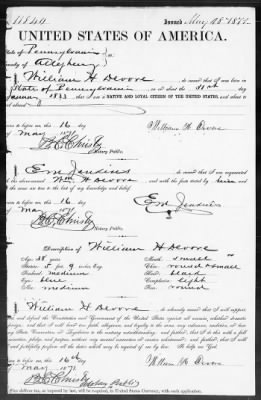 11840
Issued May 18 1871
UNITED STATES OF AMERICA.
State of Pennsylvania
County of Allegheny
I William H Devore do swear that I was born in
State of Pennsylvania on or about the 31st day
1833 that I am a NATIVE AND LOYAL CITIZEN OF THE UNITED STATES, and about to
abroad
to before me, this 16
William H. Devore
May 1871
Notary Public.
I Em Jenkins do swear that I am acquainted
the above-named Wm H Devore and with the facts
the same are true to the best of my knowledge and belief.
to before me, this 16
Em Jenkins
May 1871
Notary Public.
Description of William H Devore
Age: 38 years
Mouth: small
Stature: 5 feet 9 inches Eng.
Chin: round & small
Forehead: medium
Hair: black
Eyes: blue
Complexion: light
Nose: medium
Face: round
I William H Devore do solemnly swear that I will support,
and defend the Constitution and Government of the United States against all enemies, whether domestic
foreign; and that I will bear true faith, allegiance, and loyalty to the same, any ordinance, resolution, or law
any State, Convention, or Legislature to the contrary notwithstanding; and further, that I do this with a full
determination, pledge, and purpose, without any mental reservation or evasion whatsoever; and further, that I will
well and faithfully perform all the duties which may be required of me by law. So help me God.
to before me, this 16th
William H. Devore
May 1871
Notary Public